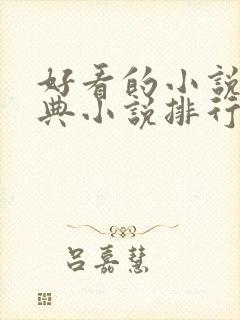 好看的小説
典小説排行
吕嘉慧